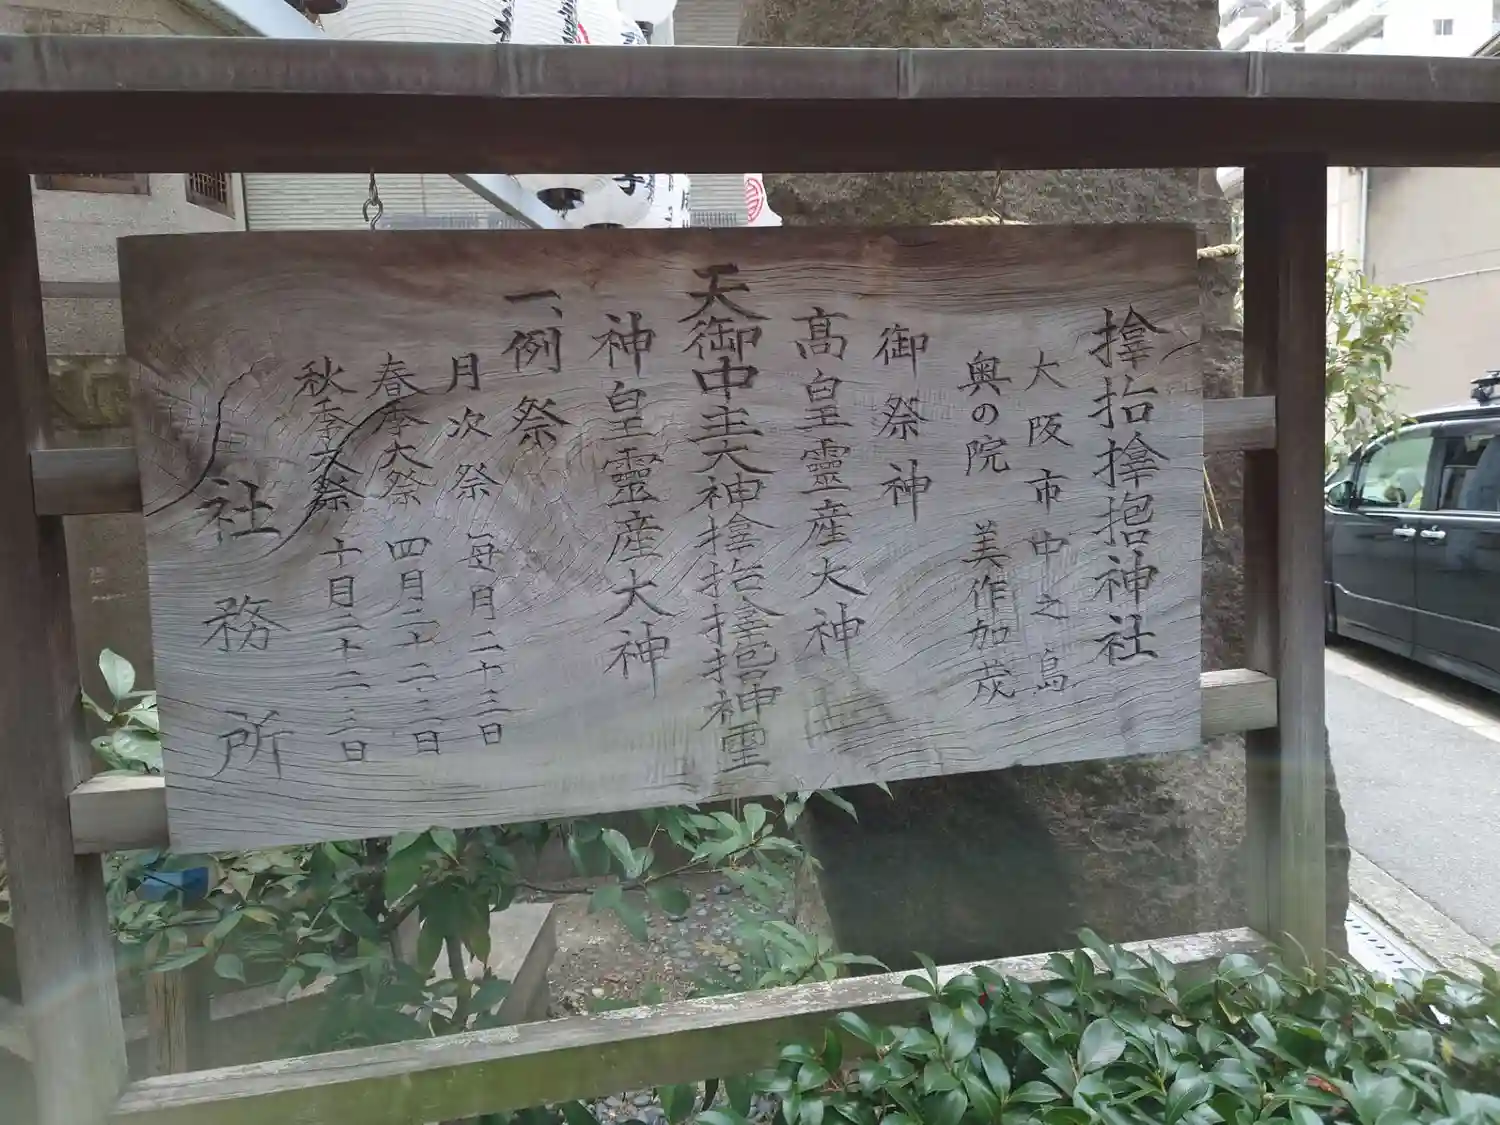 𪮷抬𪮷𫝼神社
大阪市中之島
奥の院 美作加茂
御祭神
髙皇靈産大神
天御中主大神𪮷抬𪮷𫝼神霊
神皇靈産大神
一、例祭
月次祭 毎月二十三日
春季大祭 四月二十二・三日
秋季大祭 十月二十二・三日
社務所